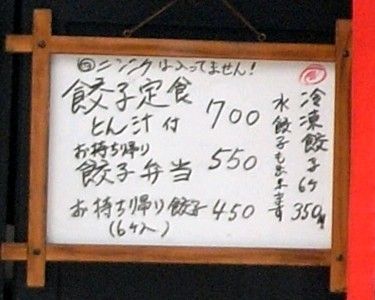 ニンニクは入ってません!
餃子定食 700
とん汁付
お持ち帰り
餃子弁当 550
お持ち帰り餃子 450
(6ケ入)
冷凍餃子6ケ350円
水餃子も出来ます